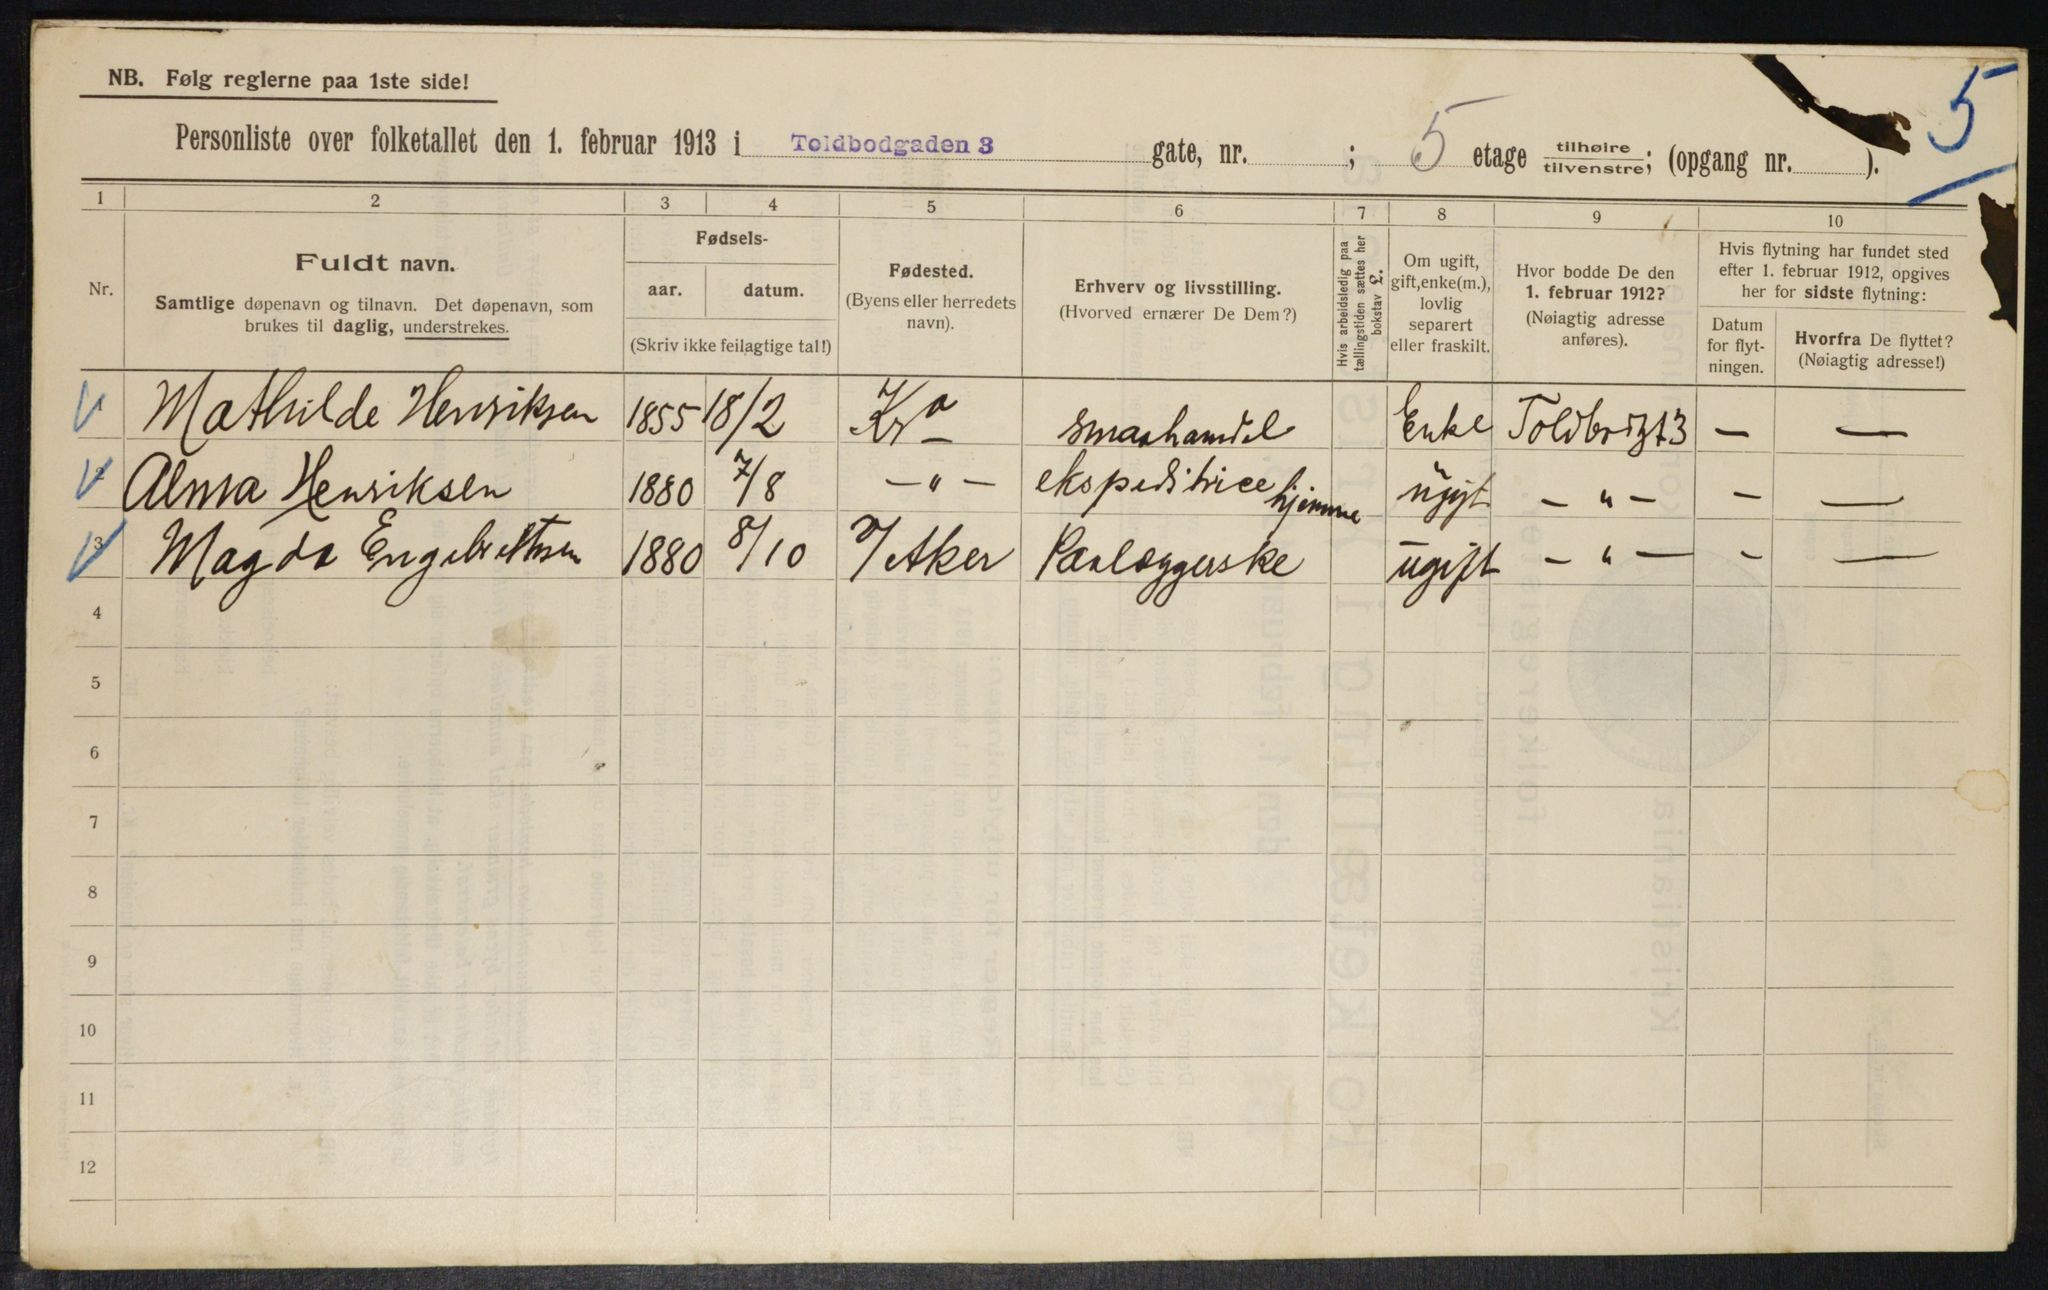 NB. Følg reglerne paa 1ste side!
5
Personliste over folketallet den 1. februar 1913 i Toldbodgaden 3 gate, nr. ; 5 etage tilhøire/tilvenstre; (opgang nr. ).
1 2 3 4 5 6 7 8 9 10
Nr.
Fuldt navn.
Samtlige døpenavn og tilnavn. Det døpenavn, som
brukes til daglig, understrekes.
Fødsels-
aar. datum.
(Skriv ikke feilagtige tal!)
Fødested.
(Byens eller herredets
navn).
Erhverv og livsstilling.
(Hvorved ernærer De Dem?)
Hvis arbeidsledig paa
tællingstiden sættes her
bokstav £.
Om ugift,
gift, enke(m.),
lovlig
separert
eller fraskilt.
Hvor bodde De den
1. februar 1912?
(Nøiagtig adresse
anføres).
Hvis flytning har fundet sted
efter 1. februar 1912, opgives
her for sidste flytning:
Datum
for flyt-
ningen.
Hvorfra De flyttet?
(Nøiagtig adresse!)
1 Mathilde Henriksen 1855 18/2 Kra smaahandel Enke Toldbodgt 3 — —
2 Alma Henriksen 1880 7/8 — " — ekspeditrice hjemme ugift — " — — —
3 Magda Engebrettsen 1880 8/10 V Aker Paalæggerske ugift — " — — —
4
5
6
7
8
9
10
11
12